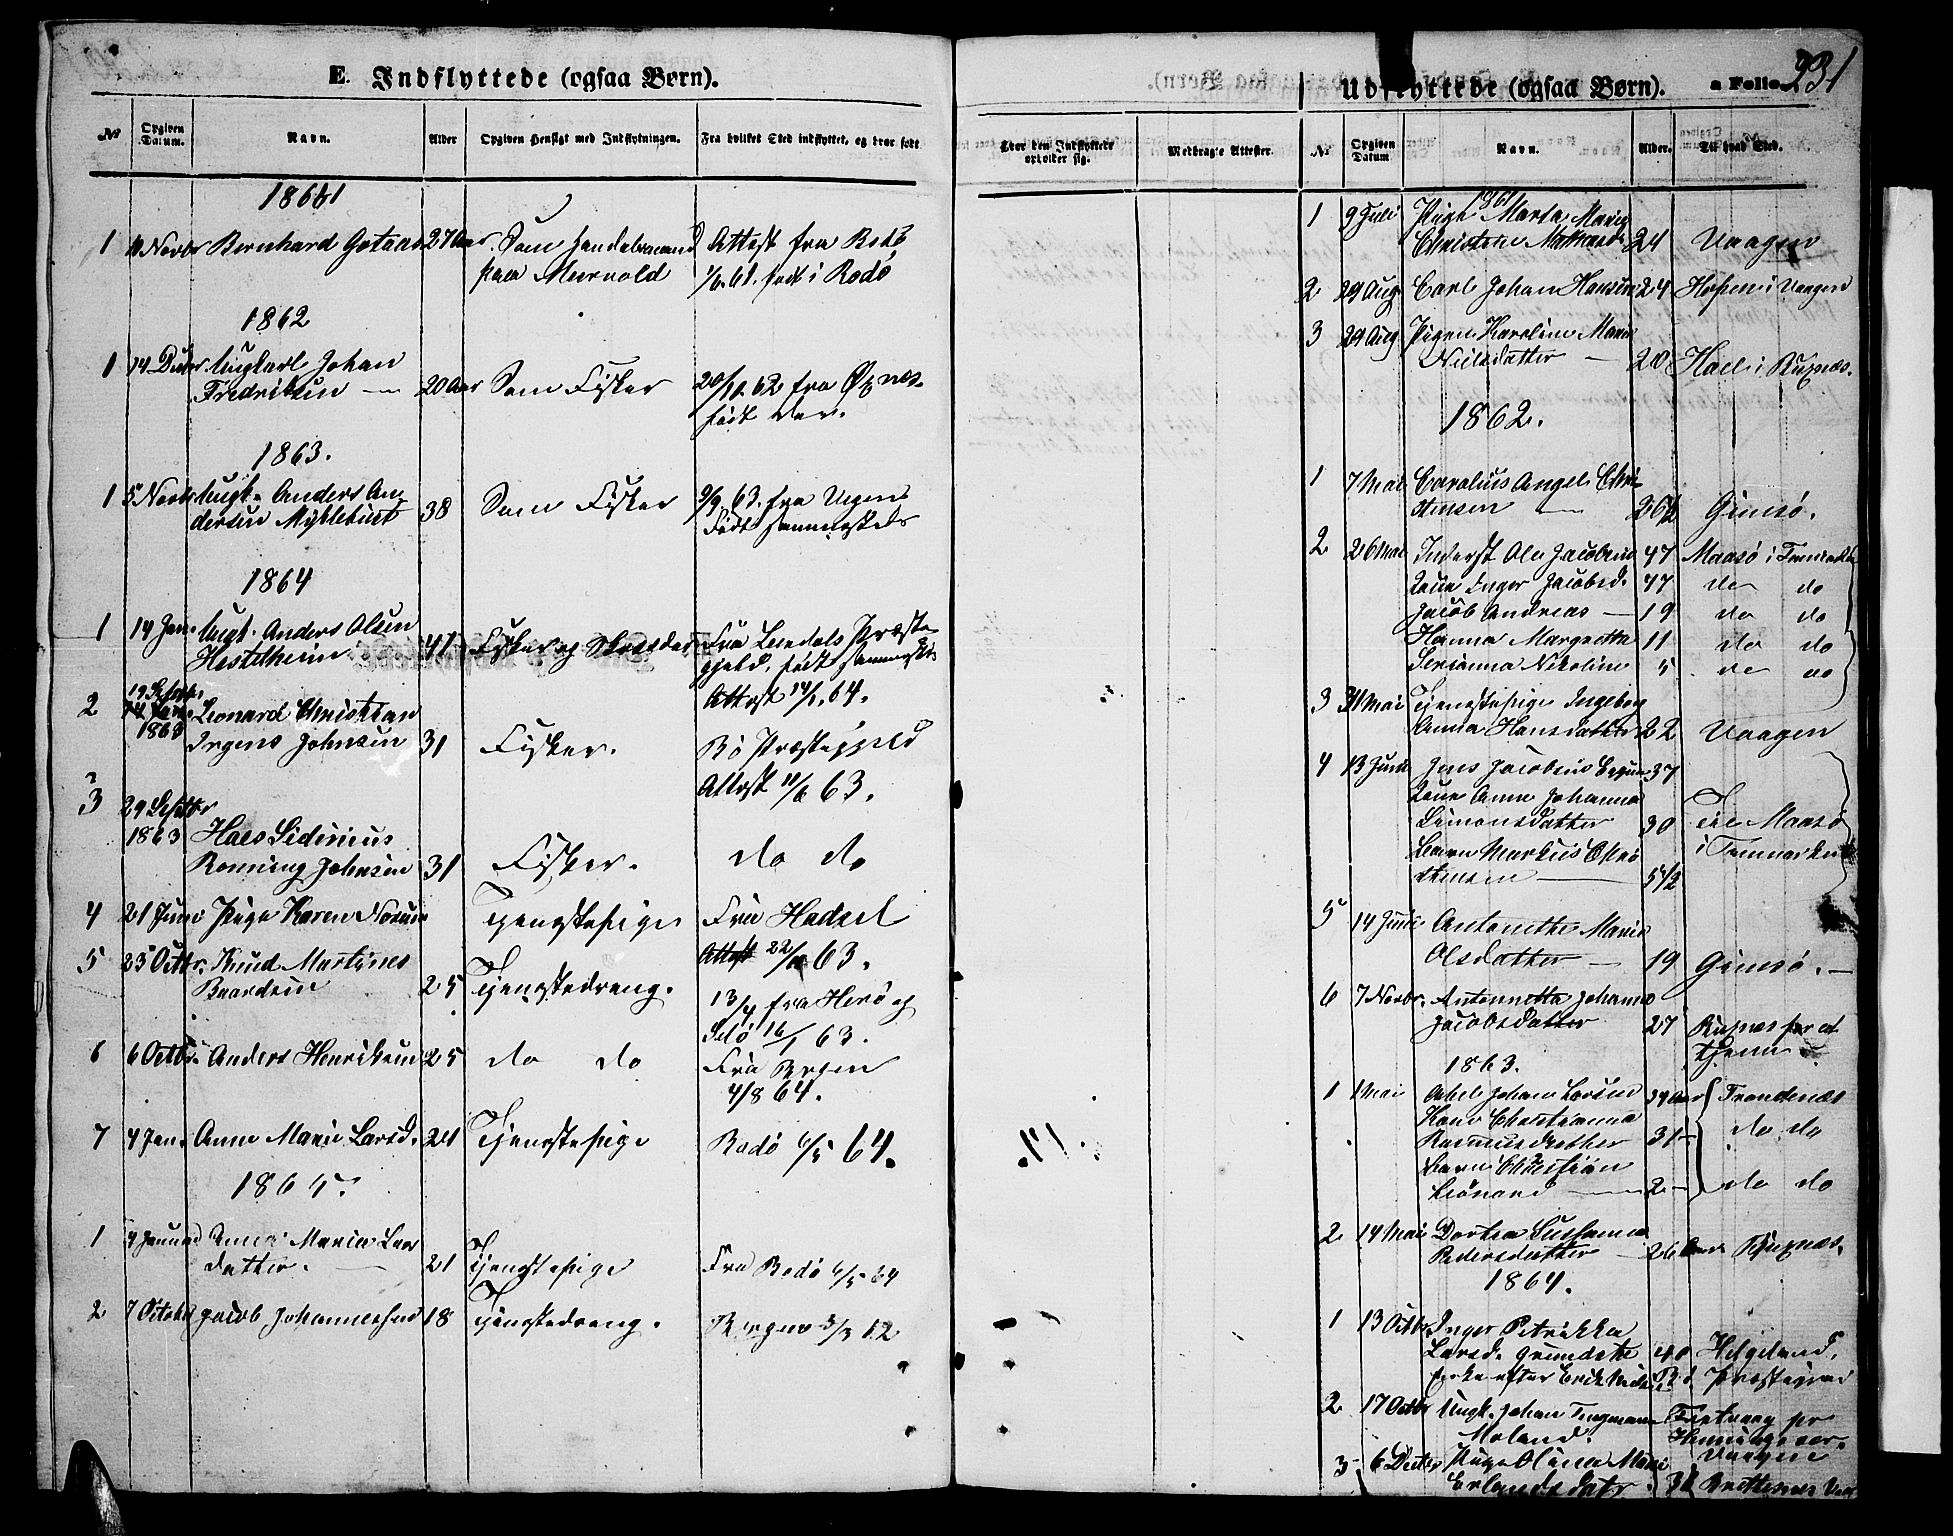 E. Indflyttede (ogsaa Børn).
№ Opgiven Datum. Navn. Alder Opgiven Hensigt med Indflytningen. Fra hvilket Sted indflyttet, og hvor født
1861
1 Novbr Bernhard Gotaas 27 Aar Som Handelsmand Attest fra Bodø
paa 61. født i Bodø
1862
1 14 Decbr Ungkarl Johan
Fredriksen — 20 Aar Som Fisker 20/11 62 fra Øxnæs.
født der.
1863.
1 5 Novbr Ungk. Anders An
dersen Myklebust 38 Som Fisker 9/9 63. fra
født sammesteds
1864
1 14 Jan. Ungk. Anders Olsen 41 Fisker og Skrædder Fra Leerdals Præste
gjeld, født sammesteds
Attest 64.
2 19 Septbr. 1863 Leonard Christian
Irgens Johnsen 31 Fisker. Bø Præstegjeld
Attest 11/6 63.
3 29 Septbr
1863 Haes Sidenius
Rønning Johnsen 31 Fisker. do do
4 21 Juni Pige Karen Tjenestepige Fra Hadsel
Attest 22/ 63.
5 25 Octbr. Knud Martines
Baardsen 25 Tjenestedreng. 13/4 fra Herø og
16/1 63.
6 6 Octbr Anders Henriksen 25 do do Fra Bergen
4/8 64.
7 4 Jan. Anne Marie Larsd. 21 Tjenestepige Bodø 6/5 64.
1865.
1 4 Januar Anne Maria Lars
datter. 21 Tjenestepige Fra Bodø 6/5 64
2 7 Octobr Jacob Johannessen 18 Tjenestedreng. Bergen 3/3 12
Hvor den Indflyttede opholder sig. Medbragte Attester.
Udflyttede (ogsaa Børn). a Folio 231
№ Opgiven Datum Navn. Alder. Til hvad Sted.
1861
1 9 Juli Pige Marta Marig
Christine 24 Vaagen
2 29 Aug Carl Johan Hansen 24 Hopen i Vaagen
3 29 Aug Pigen Karoline Marie
Nielsdatter — 20 i Buxnæs.
1862.
1 7 Mai Carolius Angel Chri
stensen — 26½ Gimsø.
2 26 Mai Inderst Ole Jacobsen 47 Maasø i Finmarken
Kone Inger Jacobsd. 47 do do
Jacob Andreas — 19 do do
Hanna Margretha 11 do do
Nikoline 5 do do
3 31 Mai Tjenestepige Ingeborg
Anna Hansdatter 22 Vaagen
4 13 Juni Jens Jacobsen 37
Kone Anne Johanna
Simonsdatter 30 Til Maasø
Barn Markus Chri i Finmarken
stensen — 5½
5 14 Juni Antonethe Marie
Olsdatter — 19 Gimsø. —
6 7 Novbr. Antonnetta Johanna
Jacobsdatter 27 Buxnæs for at
tjene
1863.
1 1 Mai Abel Johan Larsen 34 Aar Trondenæs
Kone Christianna
Rasmusdatter 31 — do do
Barn Christian
Leonard — 2 — do do
2 14 Mai Dortea Susanna
Pedersdatter — 26 Aar Buxnæs.
1864.
1 13 Octbr Inger Petrikka
Larsd. 40 Helgeland,
Enke efter Erik Præstegjeld
2 17 Octbr Ungk. Johan Tingmann
Moland. Henningsvær.
Vaagen
3 6 Decbr Pige Olina Marie
Erlandsdatr Brettesnes